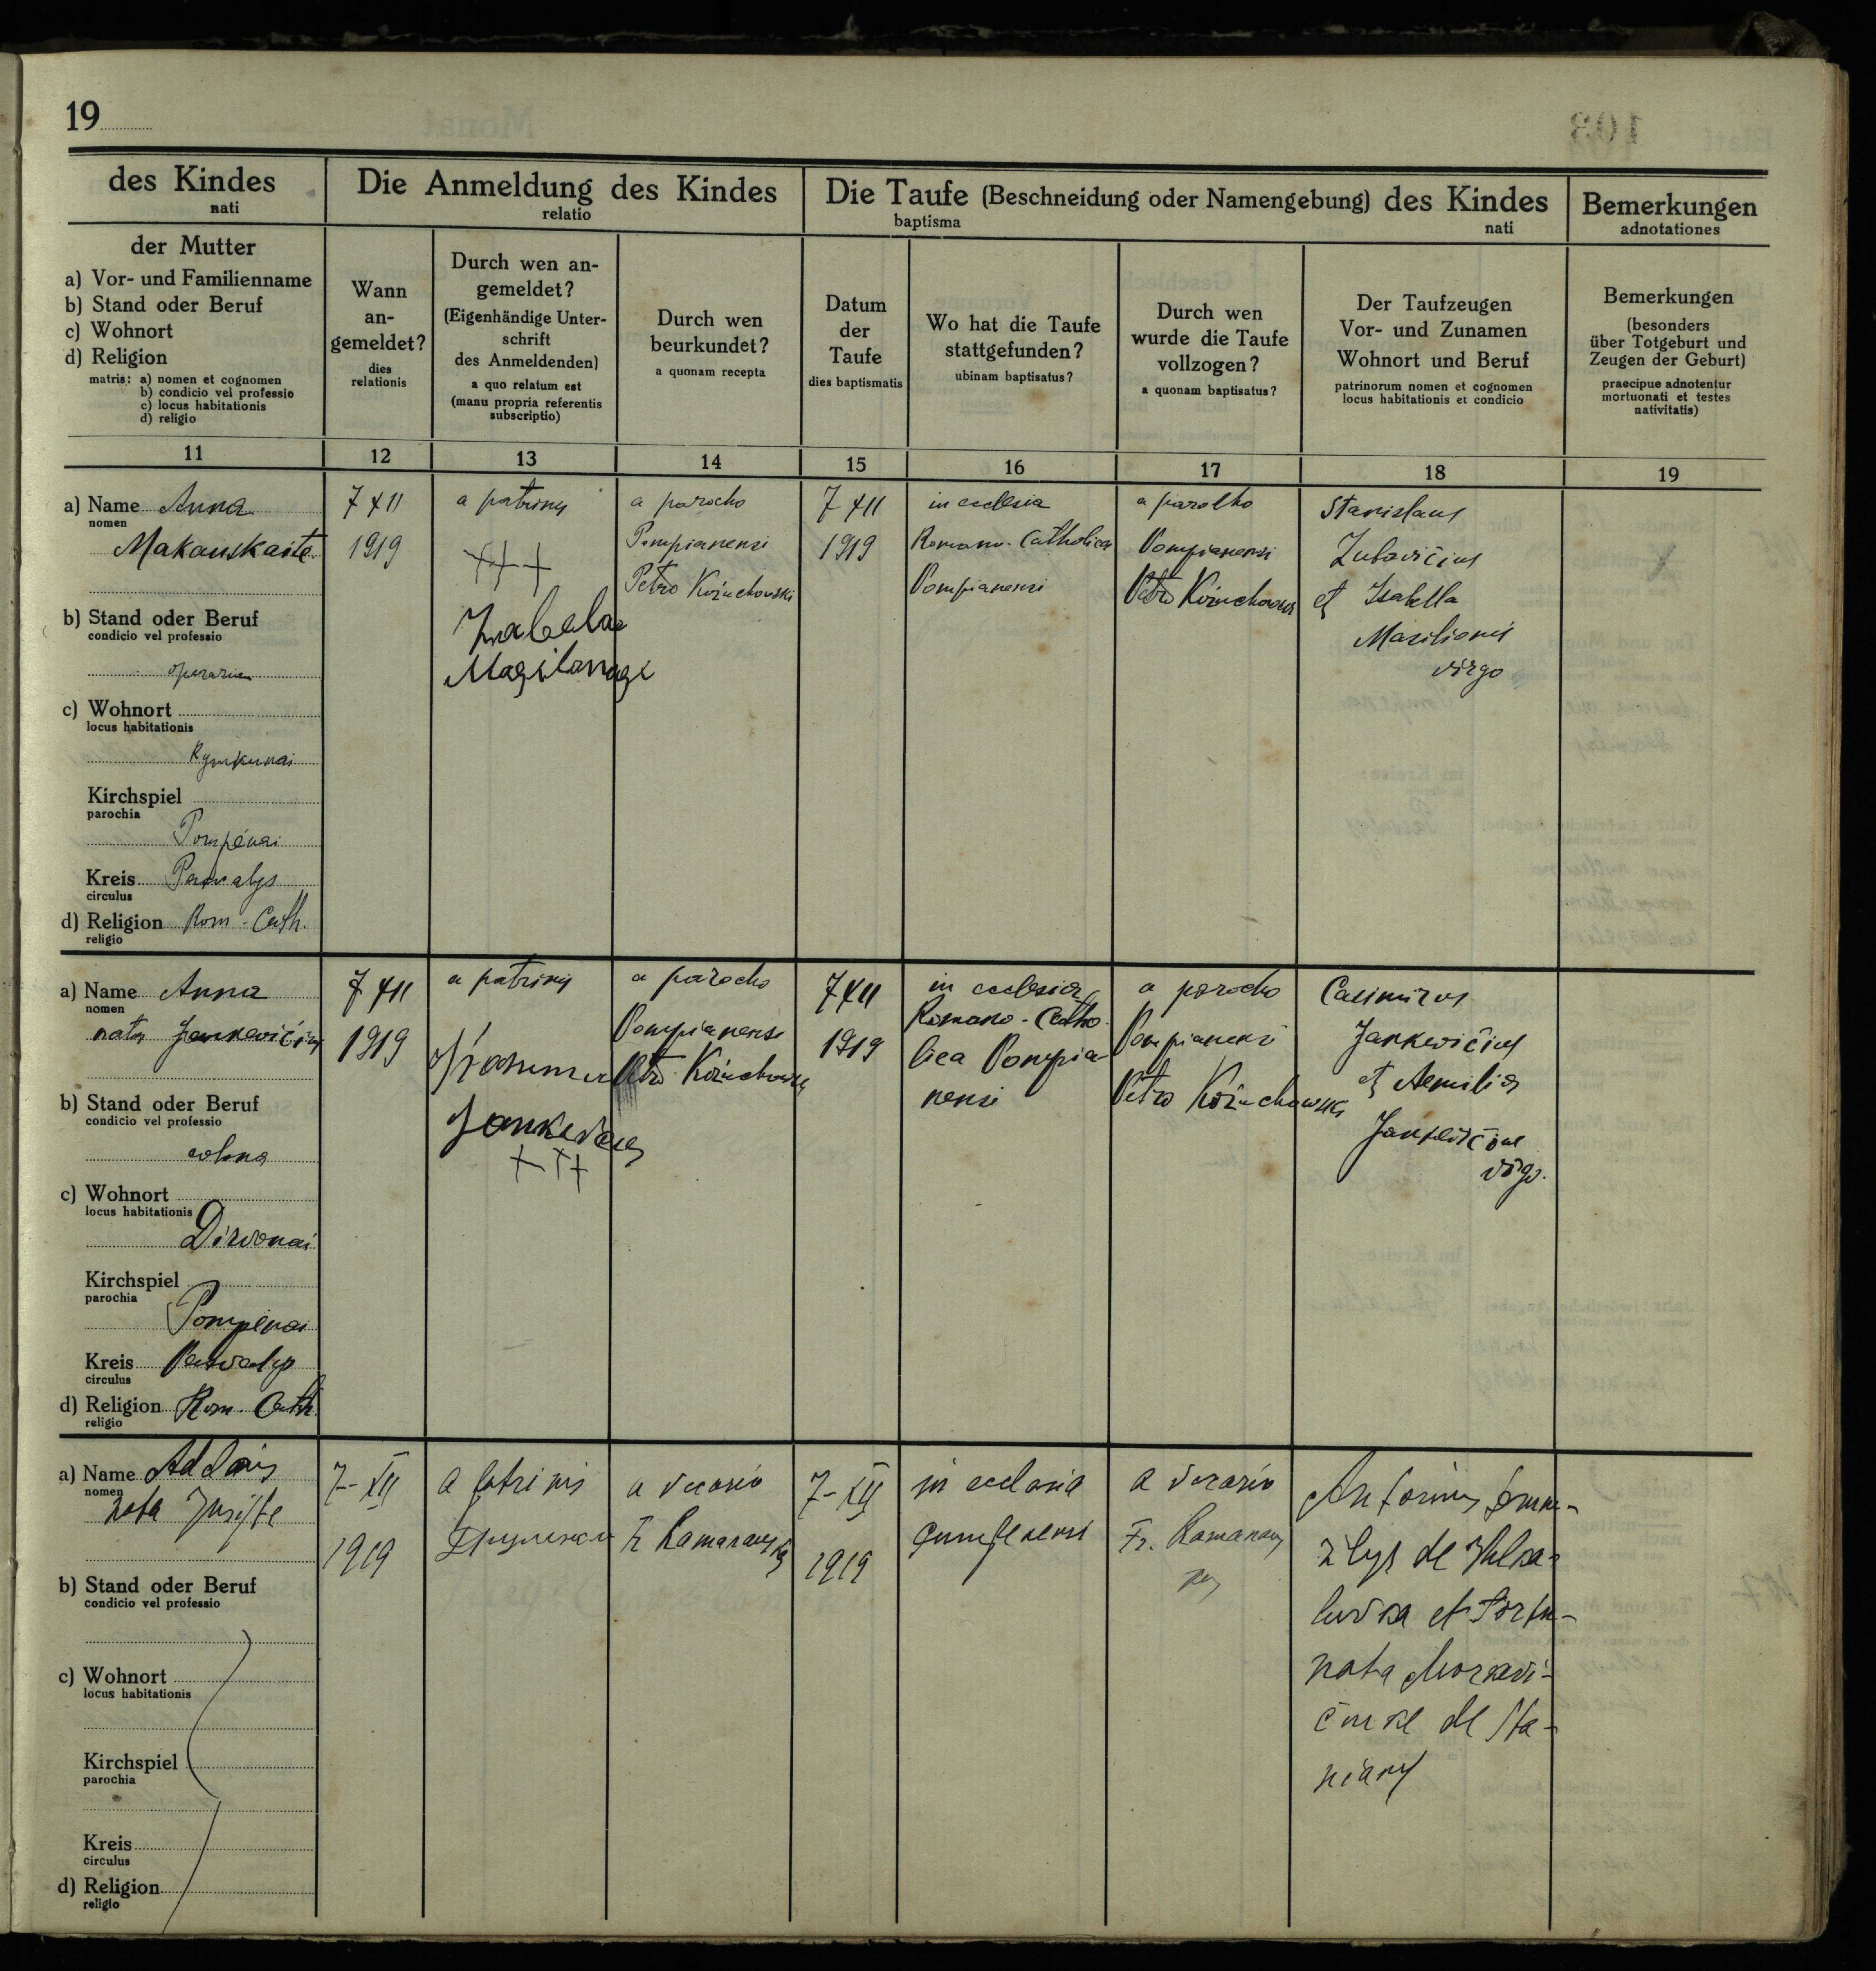 19
des Kindes
nati
Die Anmeldung des Kindes
relatio
Die Taufe (Beschneidung oder Namengebung) des Kindes
baptisma nati
Bemerkungen
adnotationes
der Mutter
a) Vor- und Familienname
b) Stand oder Beruf
c) Wohnort
d) Religion
matris: a) nomen et cognomen
b) condicio vel professio
c) locus habitationis
d) religio
Wann
an-
gemeldet?
dies
relationis
Durch wen an-
gemeldet?
(Eigenhändige Unter-
schrift
des Anmeldenden)
a quo relatum est
(manu propria referentis
subscriptio)
Durch wen
beurkundet?
a quonam recepta
Datum
der
Taufe
dies baptismatis
Wo hat die Taufe
stattgefunden?
ubinam baptisatus?
Durch wen
wurde die Taufe
vollzogen?
a quonam baptisatus?
Der Taufzeugen
Vor- und Zunamen
Wohnort und Beruf
patrinorum nomen et cognomen
locus habitationis et condicio
Bemerkungen
(besonders
über Totgeburt und
Zeugen der Geburt)
praecipue adnotentur
mortuonati et testes
nativitatis)
11 12 13 14 15 16 17 18 19
a) Name Anna
nomen
Makauskaite
b) Stand oder Beruf
condicio vel professio
operaria
c) Wohnort
locus habitationis
Kirchspiel
parochia
Pompėnai
Kreis Pasvalys
circulus
d) Religion Rom-Cath.
religio
7 XII
1919
a patrinis
+++
Izabela
a parocho
Pompianensi
Petro Kozuchowski
7 XII
1919
in ecclesia
Romano-Catholica
Pompianensi
a parocho
Pompianensi
Petro Kozuchowski
Stanislaus
Zubavičius
et Isabella
virgo
a) Name Anna
nomen
nata Jankevičius
b) Stand oder Beruf
condicio vel professio
colona
c) Wohnort
locus habitationis
Dirvonai
Kirchspiel
parochia
Pompėnai
Kreis Pasvalys
circulus
d) Religion Rom. Cath.
religio
7 XII
1919
a patrinis
+++
a parocho
Pompianensi
Petro Kozuchowski
7 XII
1919
in ecclesia
Romano-Catho-
lica Pompia-
nensi
a parocho
Pompianensi
Petro Kozuchowski
Casimirus
Jankevičius
et Aemilia
virgo.
a) Name
nomen
nata
b) Stand oder Beruf
condicio vel professio
c) Wohnort
locus habitationis
Kirchspiel
parochia
Kreis
circulus
d) Religion
religio
7-XII
1919
a patrinis
a vicario
Fr. Ramanausko
7-XII
1919
in ecclesia
a vicario
Fr. Ramanaus
ko
Antonius
et Fortu-
nata